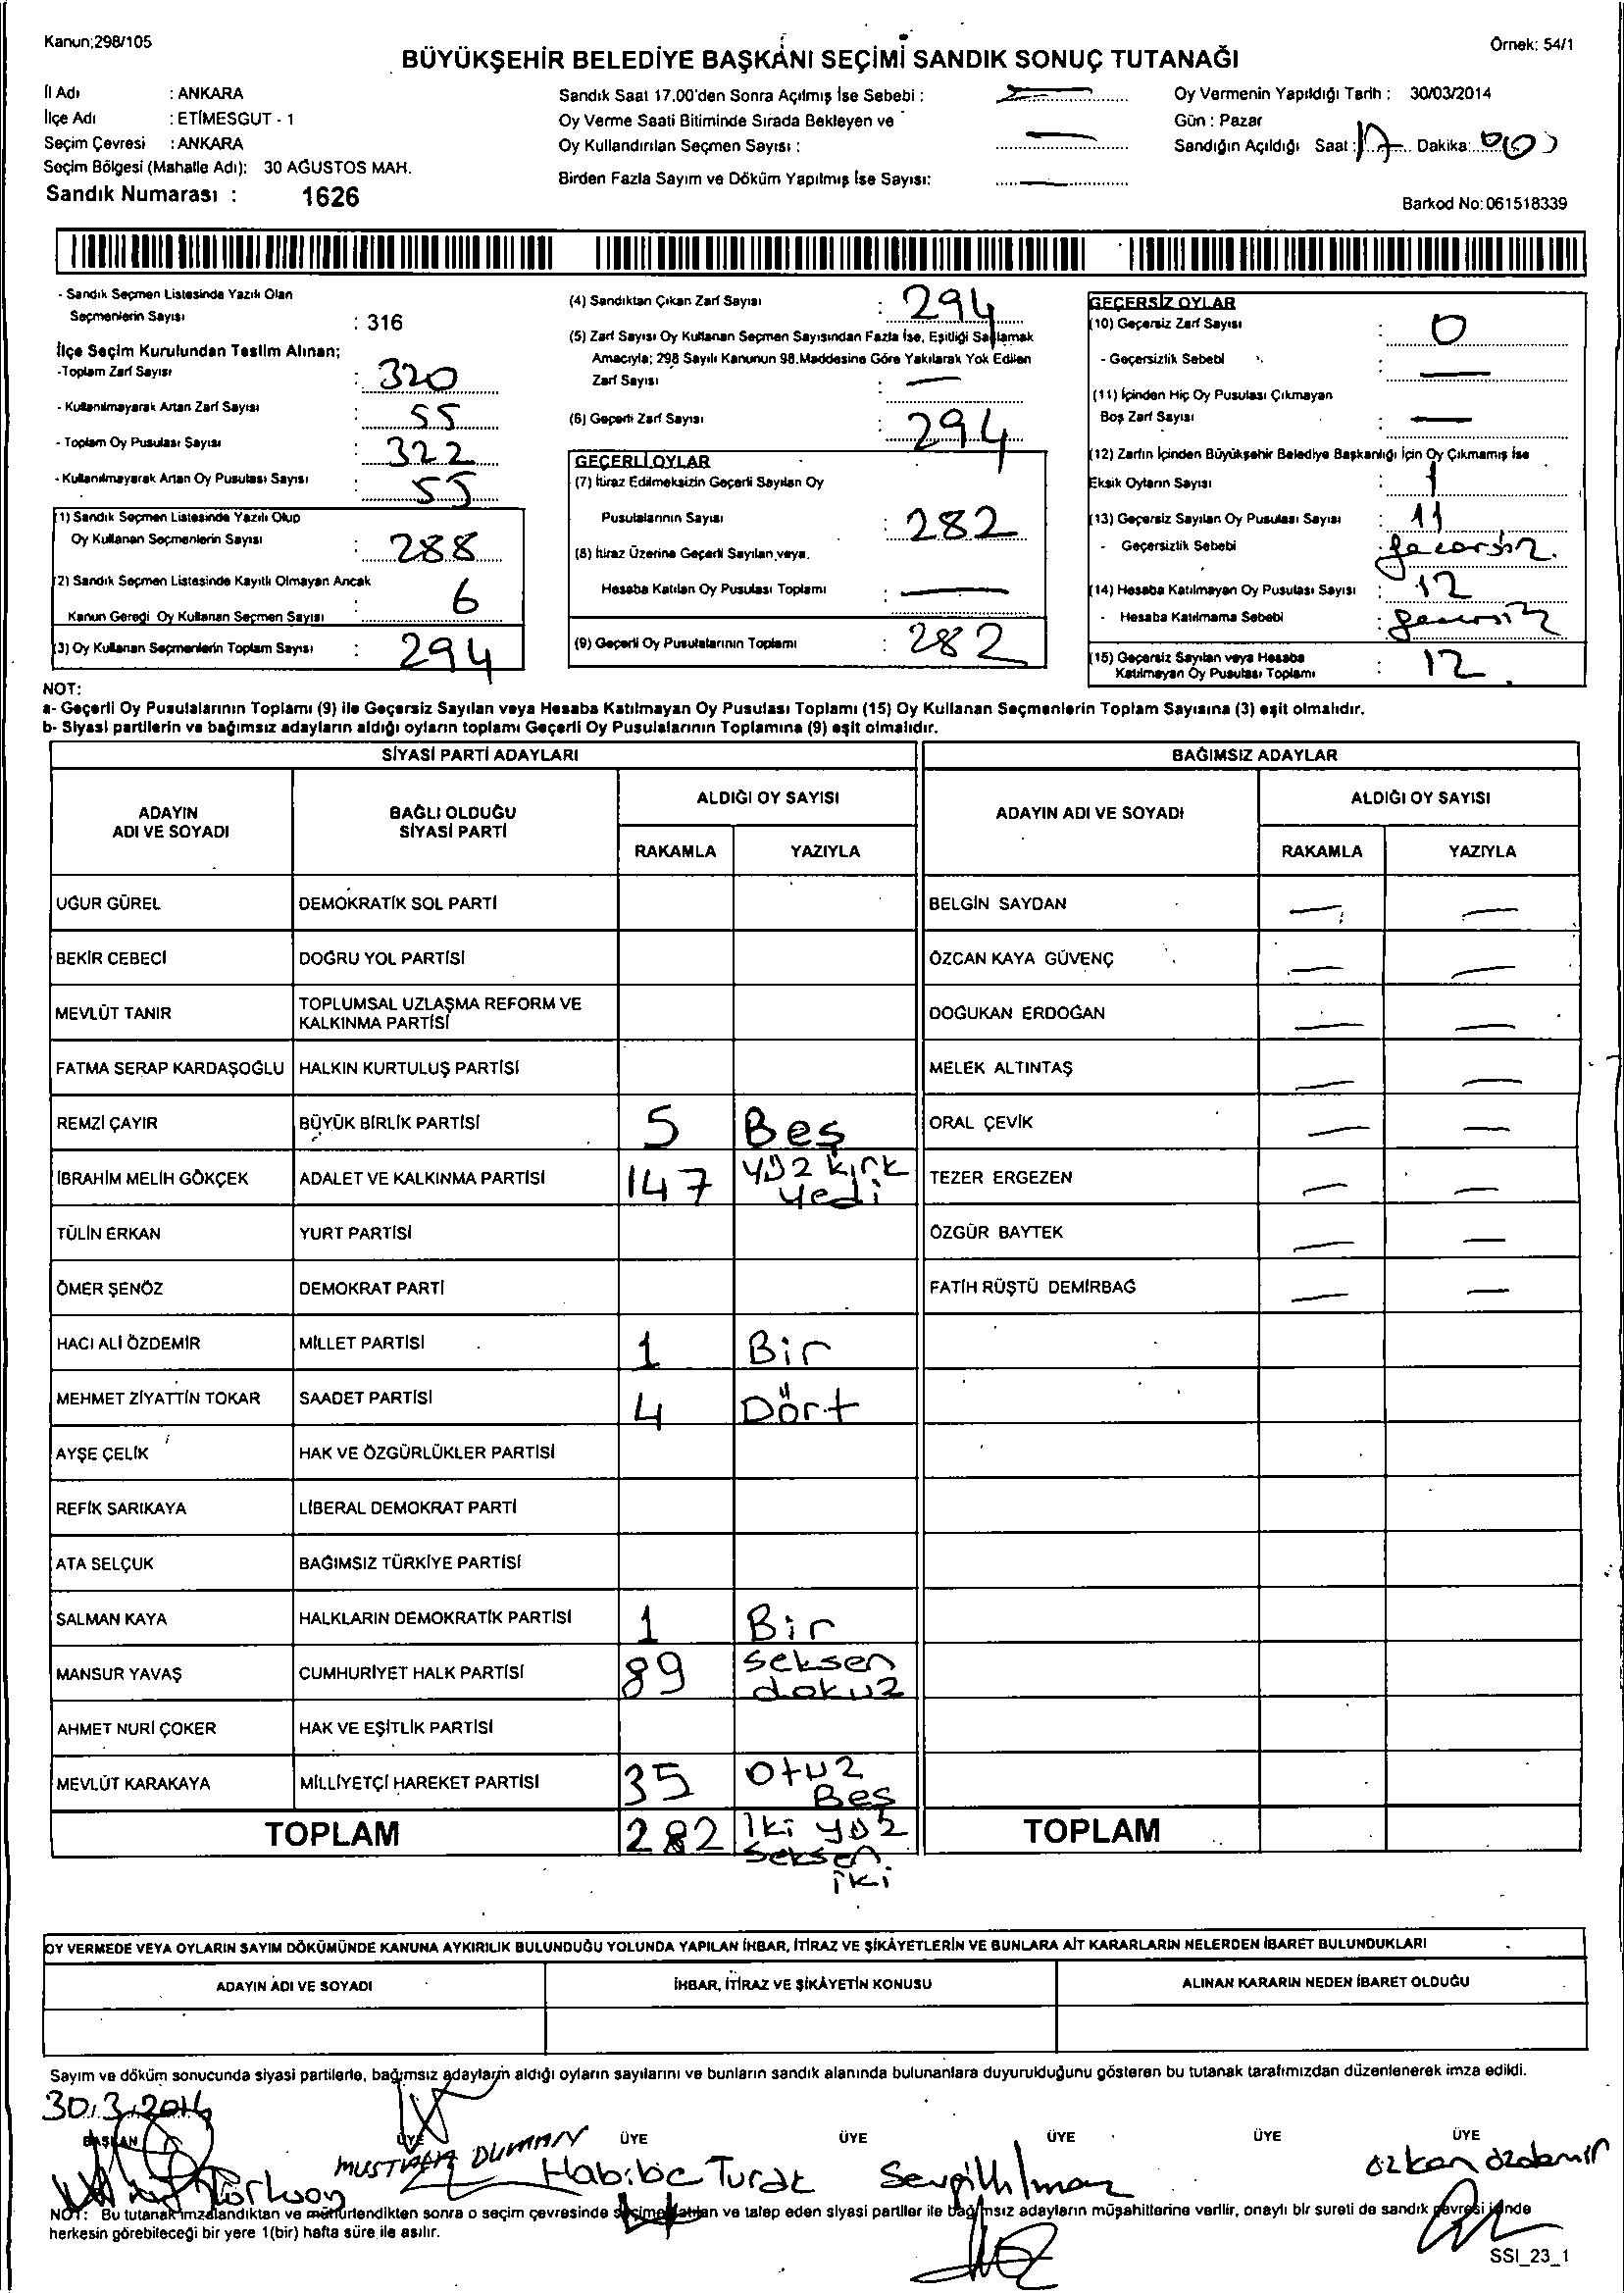 Kanun;298/105
Örnek: 54/1
BÜYÜKŞEHİR BELEDİYE BAŞKANI SEÇİMİ SANDIK SONUÇ TUTANAĞI
İl Adı : ANKARA
İlçe Adı : ETİMESGUT - 1
Seçim Çevresi : ANKARA
Seçim Bölgesi (Mahalle Adı): 30 AĞUSTOS MAH.
Sandık Numarası : 1626
Sandık Saat 17.00'den Sonra Açılmış İse Sebebi :
Oy Verme Saati Bitiminde Sırada Bekleyen ve
Oy Kullandırılan Seçmen Sayısı :
Birden Fazla Sayım ve Döküm Yapılmış İse Sayısı:
Oy Vermenin Yapıldığı Tarih : 30/03/2014
Gün : Pazar
Sandığın Açıldığı Saat : 17 Dakika:
Barkod No: 061518339
- Sandık Seçmen Listesinde Yazılı Olan
Seçmenlerin Sayısı : 316
İlçe Seçim Kurulundan Teslim Alınan;
-Toplam Zarf Sayısı : 320
- Kullanılmayarak Artan Zarf Sayısı : 55
- Toplam Oy Pusulası Sayısı : 322
- Kullanılmayarak Artan Oy Pusulası Sayısı : 55
(1) Sandık Seçmen Listesinde Yazılı Olup
Oy Kullanan Seçmenlerin Sayısı : 288
(2) Sandık Seçmen Listesinde Kayıtlı Olmayan Ancak
Kanun Gereği Oy Kullanan Seçmen Sayısı : 6
(3) Oy Kullanan Seçmenlerin Toplam Sayısı : 294
(4) Sandıktan Çıkan Zarf Sayısı : 294
(5) Zarf Sayısı Oy Kullanan Seçmen Sayısından Fazla İse, Eşitliği Sağlamak
Amacıyla; 298 Sayılı Kanunun 98.Maddesine Göre Yakılarak Yok Edilen
Zarf Sayısı : —
(6) Geçerli Zarf Sayısı : 294
GEÇERLİ OYLAR
(7) İtiraz Edilmeksizin Geçerli Sayılan Oy
Pusulalarının Sayısı : 282
(8) İtiraz Üzerine Geçerli Sayılan veya
Hesaba Katılan Oy Pusulası Toplamı : —
(9) Geçerli Oy Pusulalarının Toplamı : 282
GEÇERSİZ OYLAR
(10) Geçersiz Zarf Sayısı : 0
- Geçersizlik Sebebi : —
(11) İçinden Hiç Oy Pusulası Çıkmayan
Boş Zarf Sayısı : —
(12) Zarfın İçinden Büyükşehir Belediye Başkanlığı İçin Oy Çıkmamış İse
Eksik Oyların Sayısı : 1
(13) Geçersiz Sayılan Oy Pusulası Sayısı : 11
- Geçersizlik Sebebi : geçersiz.
(14) Hesaba Katılmayan Oy Pusulası Sayısı : 12
- Hesaba Katılmama Sebebi : geçersiz
(15) Geçersiz Sayılan veya Hesaba
Katılmayan Oy Pusulası Toplamı : 12
NOT:
a- Geçerli Oy Pusulalarının Toplamı (9) ile Geçersiz Sayılan veya Hesaba Katılmayan Oy Pusulası Toplamı (15) Oy Kullanan Seçmenlerin Toplam Sayısına (3) eşit olmalıdır.
b- Siyasi partilerin ve bağımsız adayların aldığı oyların toplamı Geçerli Oy Pusulalarının Toplamına (9) eşit olmalıdır.
SİYASİ PARTİ ADAYLARI
BAĞIMSIZ ADAYLAR
ADAYIN ADI VE SOYADI
BAĞLI OLDUĞU SİYASİ PARTİ
ALDIĞI OY SAYISI
RAKAMLA YAZIYLA
ADAYIN ADI VE SOYADI
ALDIĞI OY SAYISI
RAKAMLA YAZIYLA
UĞUR GÜREL DEMOKRATİK SOL PARTİ BELGİN SAYDAN — —
BEKİR CEBECİ DOĞRU YOL PARTİSİ ÖZCAN KAYA GÜVENÇ — —
MEVLÜT TANIR TOPLUMSAL UZLAŞMA REFORM VE KALKINMA PARTİSİ DOĞUKAN ERDOĞAN — —
FATMA SERAP KARDAŞOĞLU HALKIN KURTULUŞ PARTİSİ MELEK ALTINTAŞ — —
REMZİ ÇAYIR BÜYÜK BİRLİK PARTİSİ 5 Beş ORAL ÇEVİK — —
İBRAHİM MELİH GÖKÇEK ADALET VE KALKINMA PARTİSİ 147 yüz kırk yedi TEZER ERGEZEN — —
TÜLİN ERKAN YURT PARTİSİ ÖZGÜR BAYTEK — —
ÖMER ŞENÖZ DEMOKRAT PARTİ FATİH RÜŞTÜ DEMİRBAĞ — —
HACI ALİ ÖZDEMİR MİLLET PARTİSİ 1 Bir
MEHMET ZİYATTİN TOKAR SAADET PARTİSİ 4 Dört
AYŞE ÇELİK HAK VE ÖZGÜRLÜKLER PARTİSİ
REFİK SARIKAYA LİBERAL DEMOKRAT PARTİ
ATA SELÇUK BAĞIMSIZ TÜRKİYE PARTİSİ
SALMAN KAYA HALKLARIN DEMOKRATİK PARTİSİ 1 Bir
MANSUR YAVAŞ CUMHURİYET HALK PARTİSİ 89 seksen dokuz
AHMET NURİ ÇOKER HAK VE EŞİTLİK PARTİSİ
MEVLÜT KARAKAYA MİLLİYETÇİ HAREKET PARTİSİ 35 otuz Beş
TOPLAM 282 İki yüz seksen iki TOPLAM
OY VERMEDE VEYA OYLARIN SAYIM DÖKÜMÜNDE KANUNA AYKIRILIK BULUNDUĞU YOLUNDA YAPILAN İHBAR, İTİRAZ VE ŞİKÂYETLERİN VE BUNLARA AİT KARARLARIN NELERDEN İBARET BULUNDUKLARI
ADAYIN ADI VE SOYADI İHBAR, İTİRAZ VE ŞİKÂYETİN KONUSU ALINAN KARARIN NEDEN İBARET OLDUĞU
Sayım ve döküm sonucunda siyasi partilerle, bağımsız adayların aldığı oyların sayılarını ve bunların sandık alanında bulunanlara duyurulduğunu gösteren bu tutanak tarafımızdan düzenlenerek imza edildi.
30.3.2014
BAŞKAN ÜYE ÜYE ÜYE ÜYE ÜYE ÜYE
MUSTAFA DUMAN Habibe Turat Sevgi Yılmaz özkan özdemir
NOT: Bu tutanak imzalandıktan ve mühürlendikten sonra o seçim çevresinde seçime katılan ve talep eden siyasi partiler ile bağımsız adayların müşahitlerine verilir, onaylı bir sureti de sandık çevresi içinde
herkesin görebileceği bir yere 1(bir) hafta süre ile asılır.
SSI_23_1